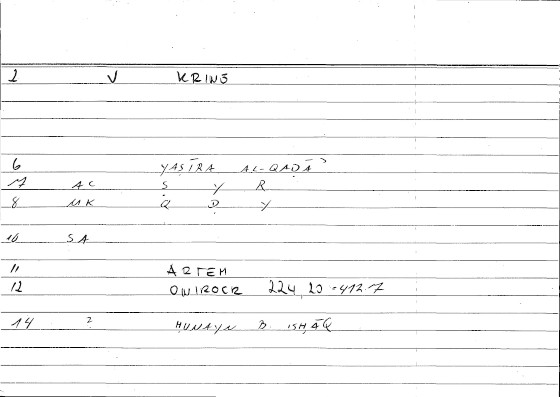 2 V KRING
6 YASĪRA AL-QAḌĀʾ
7 AC S Y R
8 MK Q Ḍ Y
10 SA
11 ARTEM
12 ONIROCR 224,20-412.7
14 ? ḤUNAYN B. ISḤĀQ